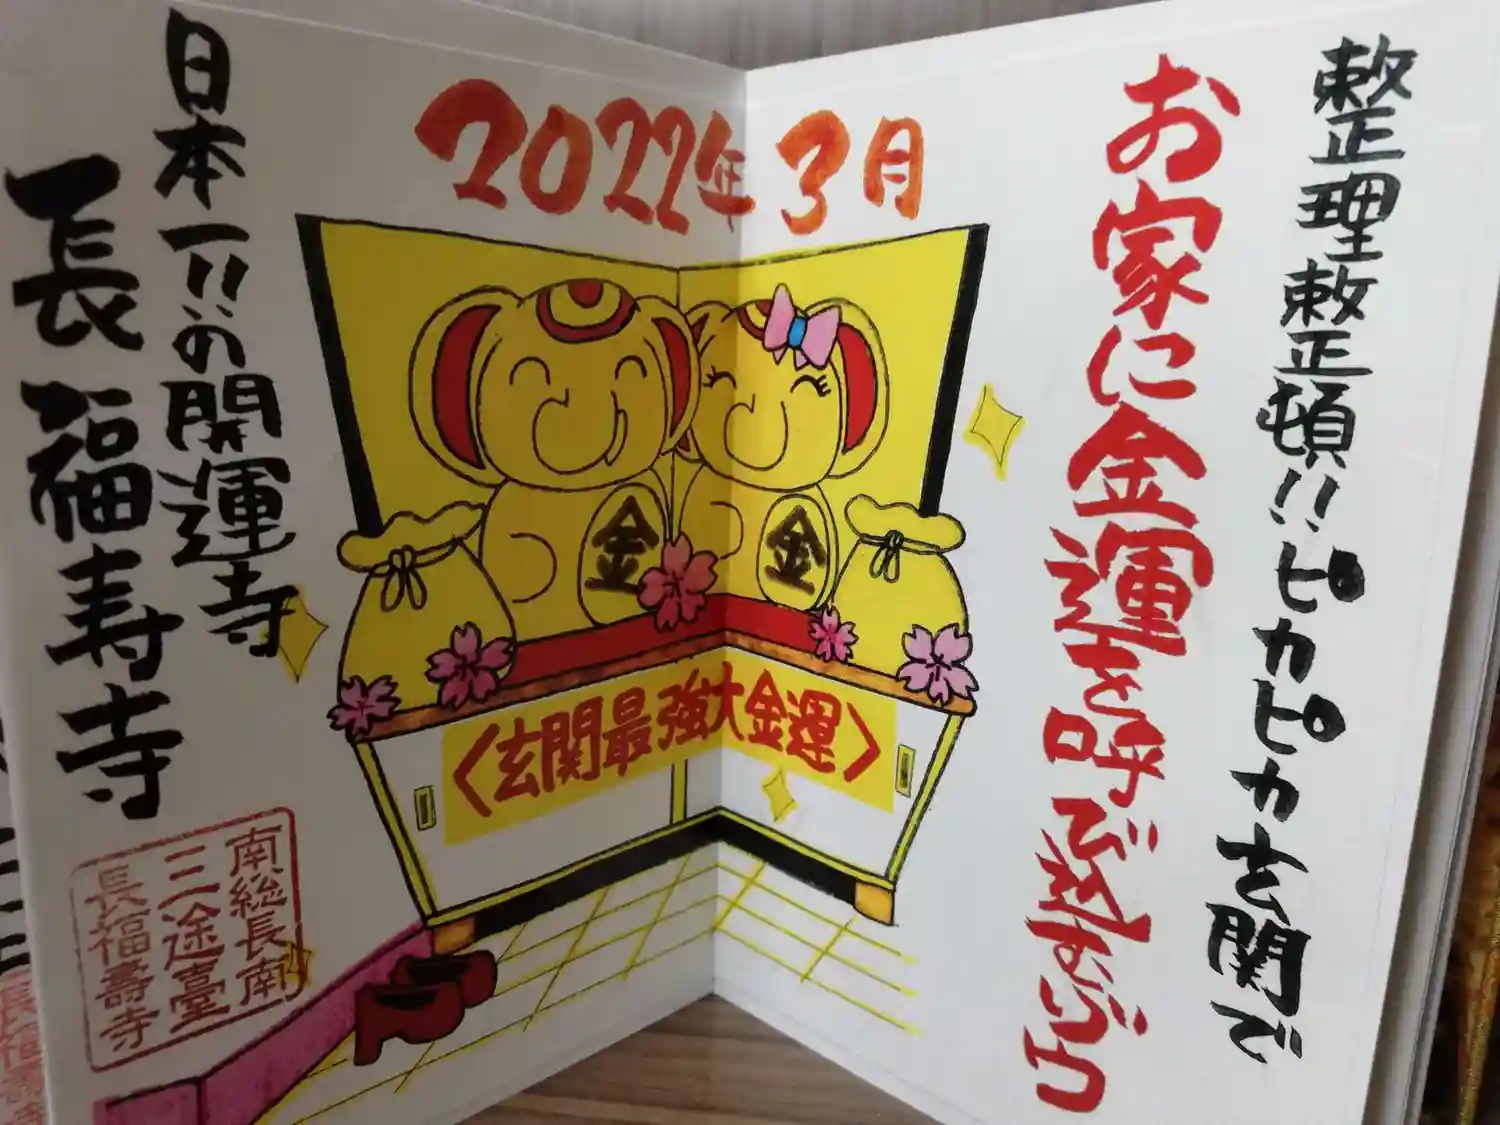 2022年3月
整理整頓!!ピカピカ玄関で
お家に金運を呼び込むゾコ
金
金
〈玄関最強大金運〉
日本一!!の開運寺
長福寿寺
南総長南
三途臺
長福壽寺